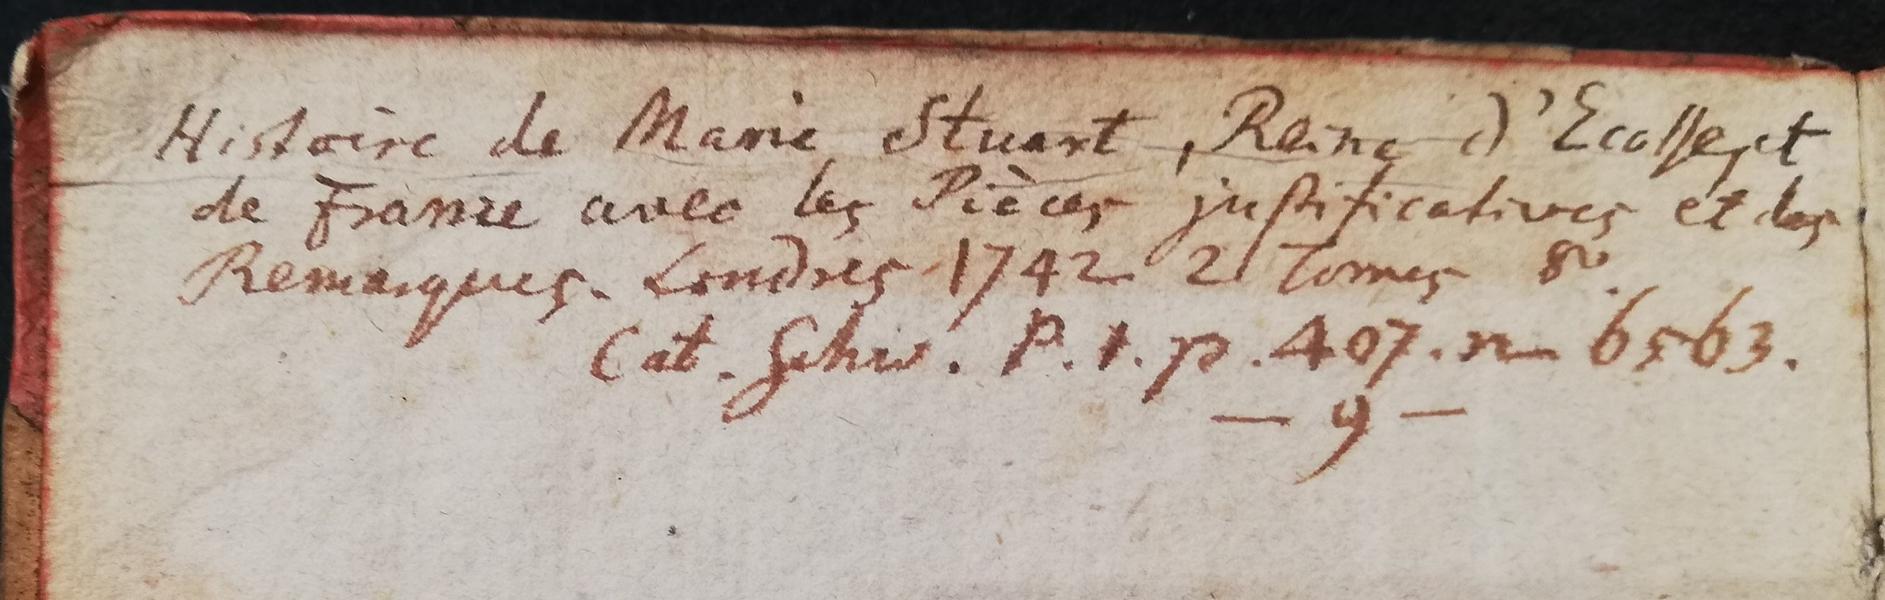 Histoire de Marie Stuart, Reine d'Ecosse, et
de France avec les Pièces justificatives et des
Remarques. Londres 1742 2 Tomes 8o.
Cat. Schw. P. 1. p. 407. n 6563.
— 9 —